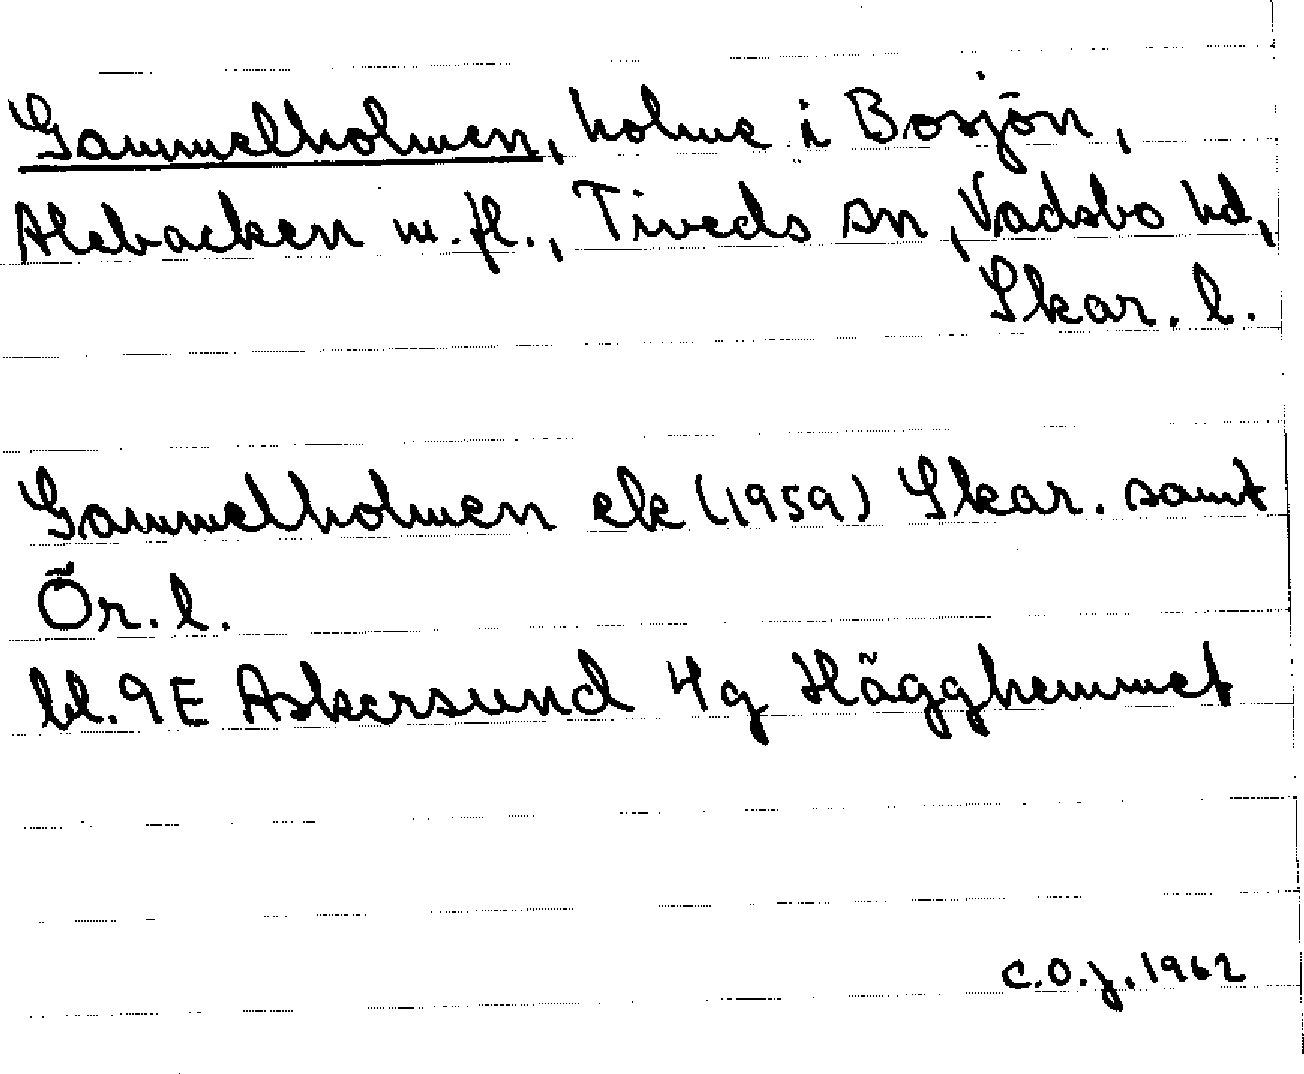 Gammelholmen, holme i Bosjön,
Alebacken m.fl., Tiveds sn, Vadsbo hd,
Skar. l.
Gammelholmen ek (1959) Skar. samt
Ör. l.
bl. 9E Askersund 4g Hägghemmet
C.O.J. 1962